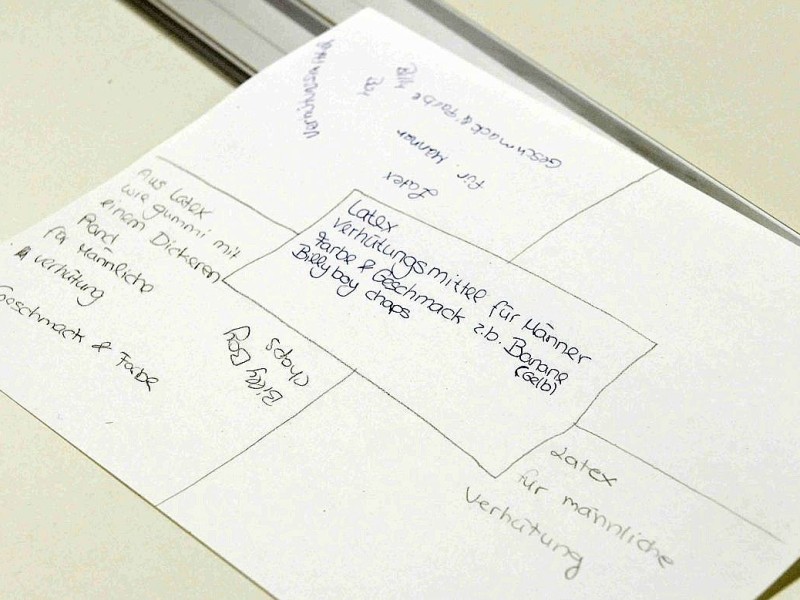 Verhütungsmittel
Billy
Boy
Geschmack & Farbe
für Männer
Latex
Aus Latex
wie gummi mit
einem Dickeren
Rand
für Männliche
verhütung
Geschmack & Farbe
Billy Boy
chaps
Latex
Verhütungsmittel für Männer
Farbe & Geschmack z.b. Banane
(Gelb)
Billyboy chaps
Latex
für männliche
Verhütung